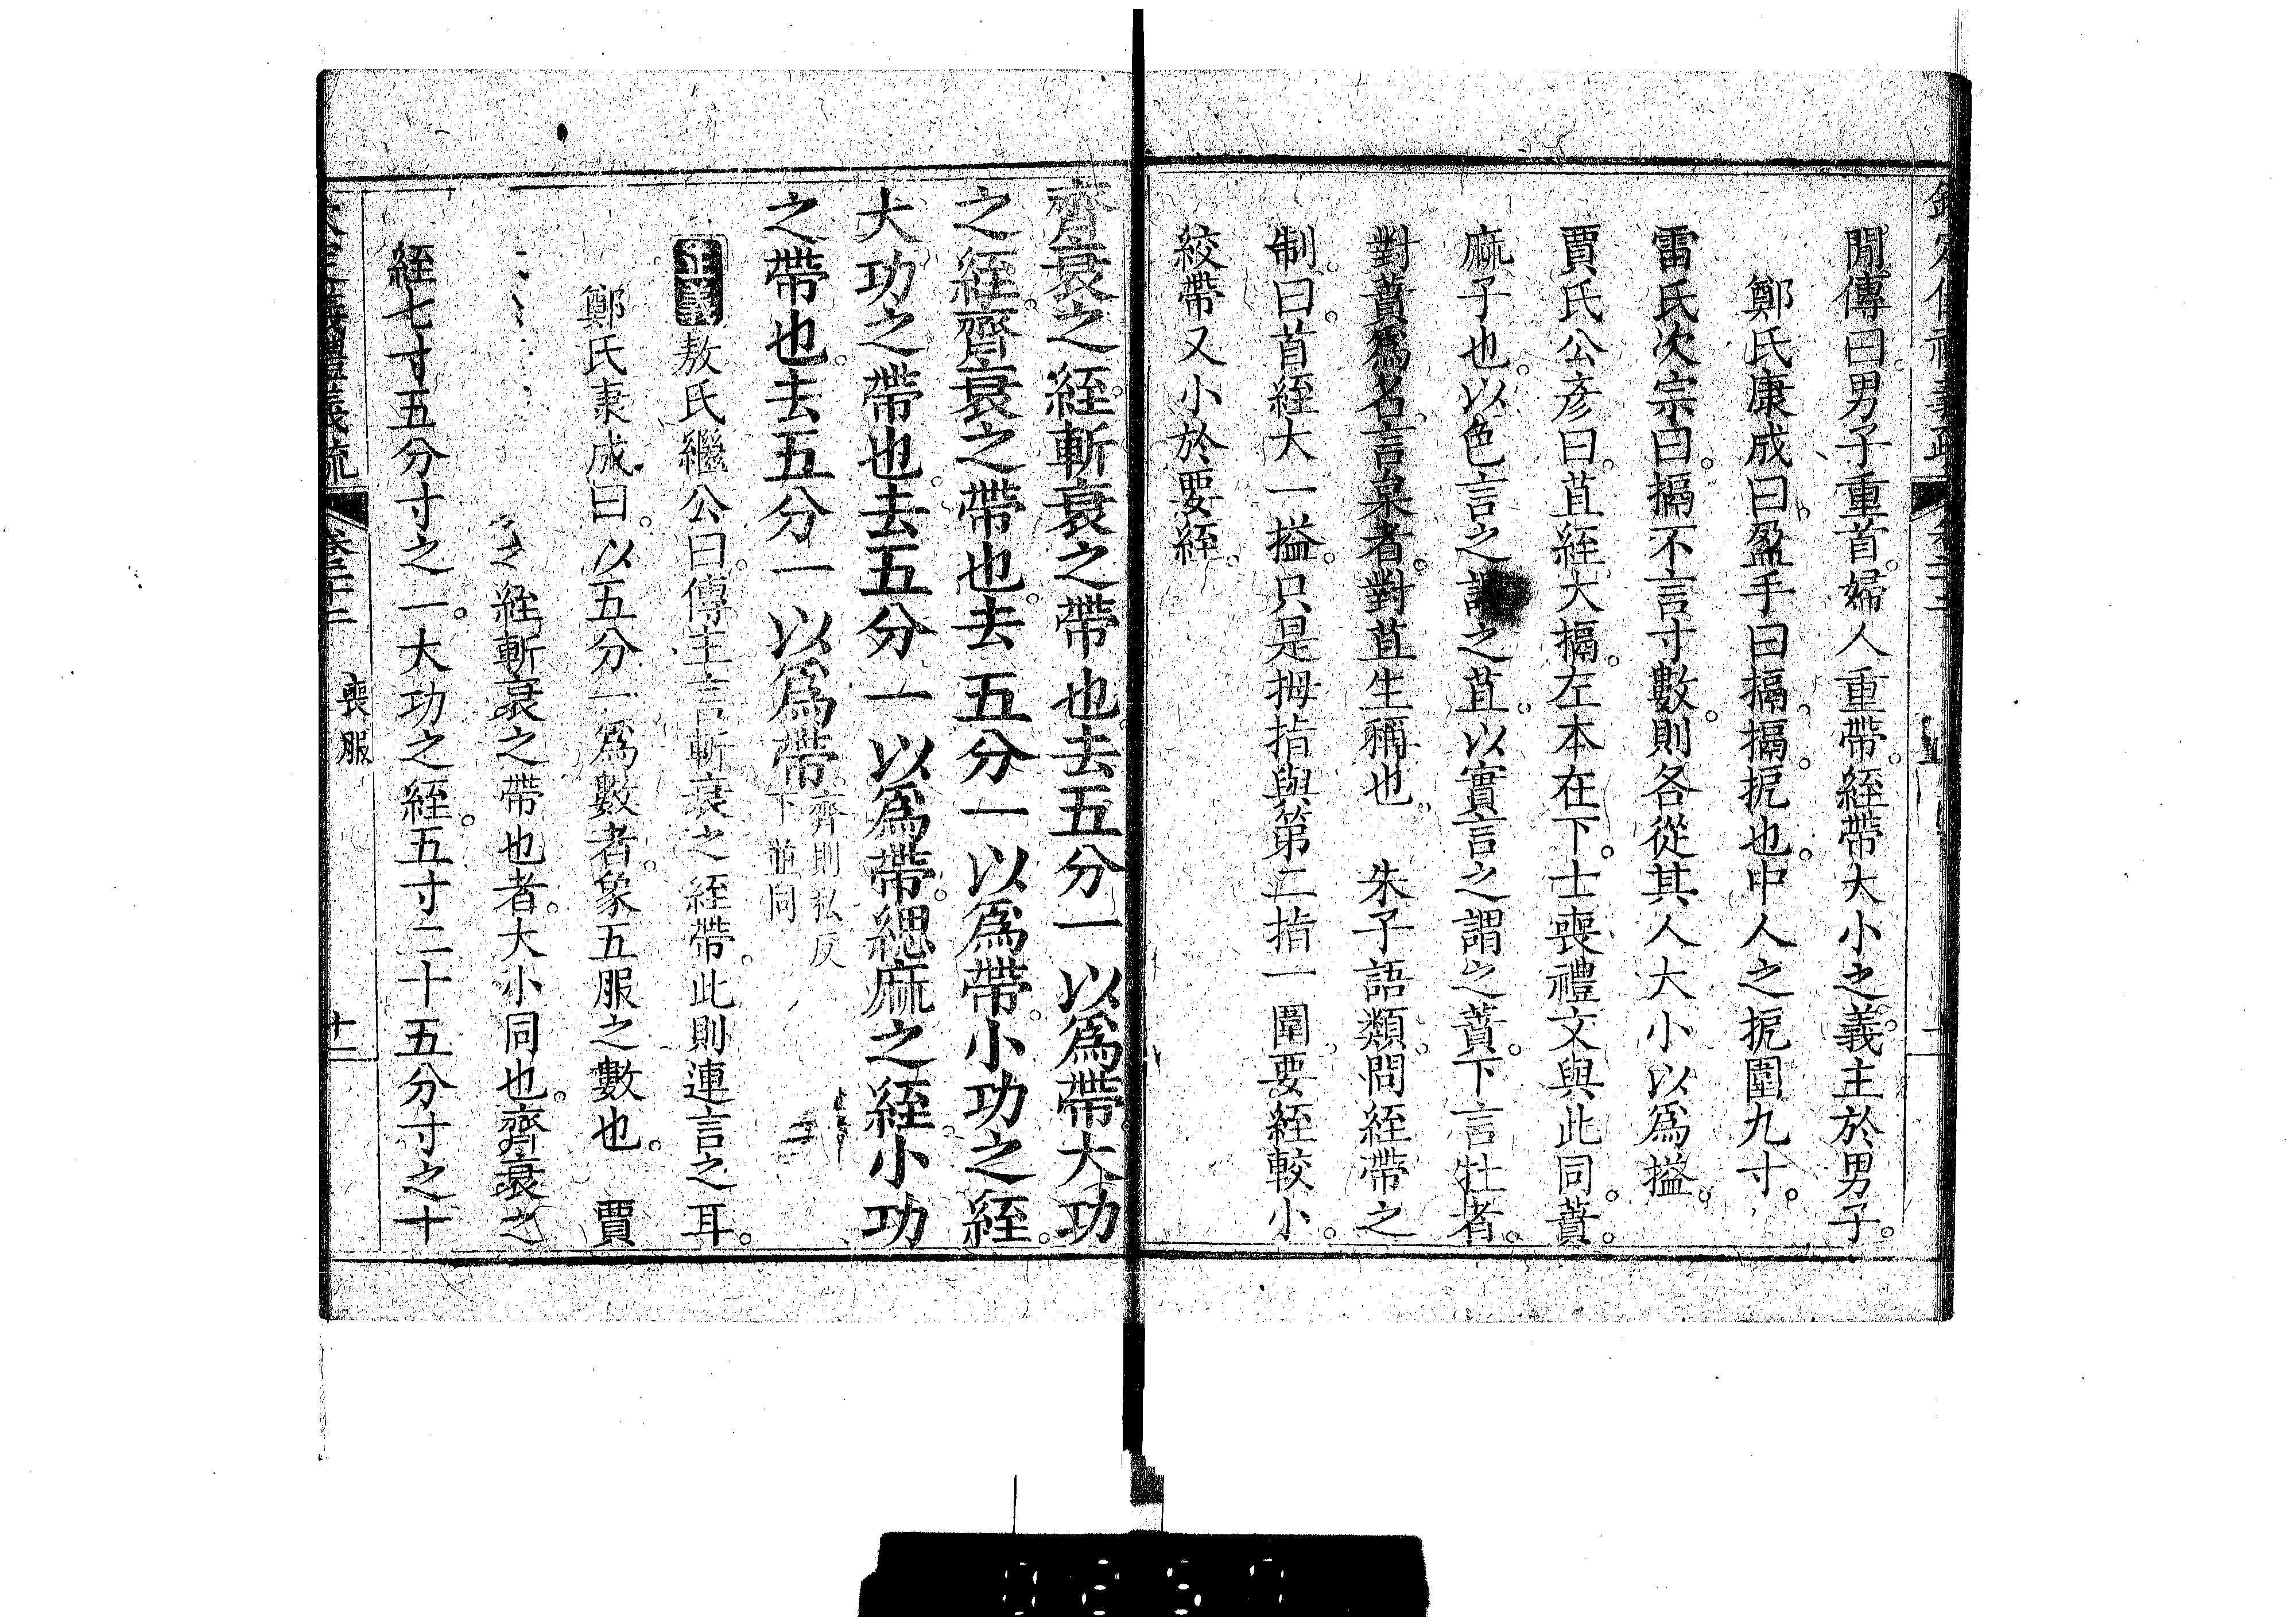 閒傳曰。男子重首。婦人重帶。絰帶大小之義。主於男子。
鄭氏康成曰。盈手曰搹。搹。搤也。中人之搤圍九寸。
雷氏次宗曰。搹不言寸數。則各從其人大小以爲搤。
賈氏公彦曰。苴絰大搹。左本在下。士喪禮文與此同。蕡。
麻子也。以色言之謂之苴。以實言之謂之蕡。下言牡者。
對蕡爲名。言枲者。對苴生稱也。 朱子語類。問絰帶之
制。曰。首絰大一搤。只是拇指與第二指一圍。要絰較小。
絞帶又小於要絰。
齊衰之絰。斬衰之帶也。去五分一以爲帶。大功
之絰。齊衰之帶也。去五分一以爲帶。小功之絰。
大功之帶也。去五分一以爲帶。緦麻之絰。小功
之帶也。去五分一以爲帶
齊則私反
下並同
正義敖氏繼公曰。傳主言斬衰之絰帶。此則連言之耳。
鄭氏康成曰。以五分一爲數者。象五服之數也。 賈
之絰斬衰之帶也者。大小同也。齊衰之
絰七寸五分寸之一。大功之絰。五寸二十五分寸之十
儀禮義疏 卷二十二 喪服 十一